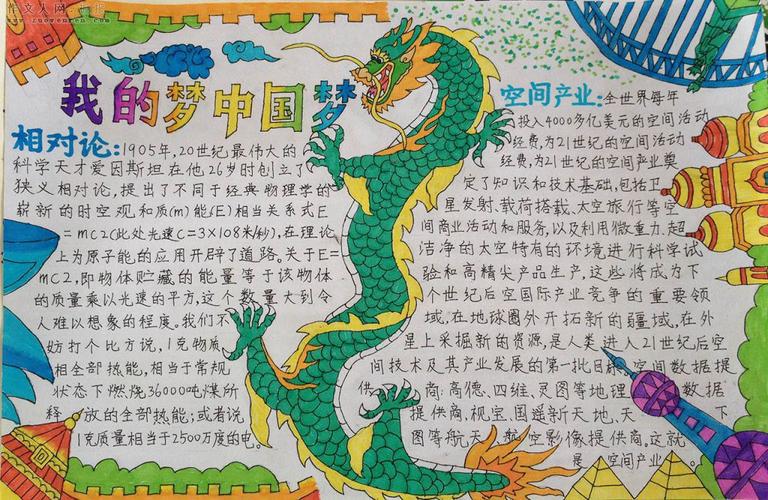 作文人网
www.zuowenren.com
我的梦中国梦
相对论:1905年,20世纪最伟大的
科学天才爱因斯坦在他26岁时创立了
狭义相对论,提出了不同于经典物理学的
崭新的时空观和质(m)能(E)相当关系式E
=mC2(此处光速C=3×108米/秒),在理论
上为原子能的应用开辟了道路。关于E=
mC2,即物体贮藏的能量等于该物体
的质量乘以光速的平方,这个数量大到令
人难以想象的程度。我们不
妨打个比方说,1克物质
相全部热能,相当于常规
状态下燃烧36000吨煤所
释放的全部热能;或者说
1克质量相当于2500万度的电。
空间产业:全世界每年
投入4000多亿美元的空间活动
经费,为21世纪的空间活动
经费,为21世纪的空间产业奠
定了知识和技术基础,包括卫
星发射、载荷搭载、太空旅行等空
间商业活动和服务,以及利用微重力、超
洁净的太空特有的环境进行科学试
验和高精尖产品生产,这些将成为下
个世纪后空国际产业竞争的重要领
域,在地球圈外开拓新的疆域,在外
星上采掘新的资源,是人类进入21世纪后空
间技术及其产业发展的第一批目标。空间数据提
供商:高德、四维、灵图等地理数据
提供商,视宝、国遥新天地、天下
图等航天航空影像提供商。这就
是空间产业